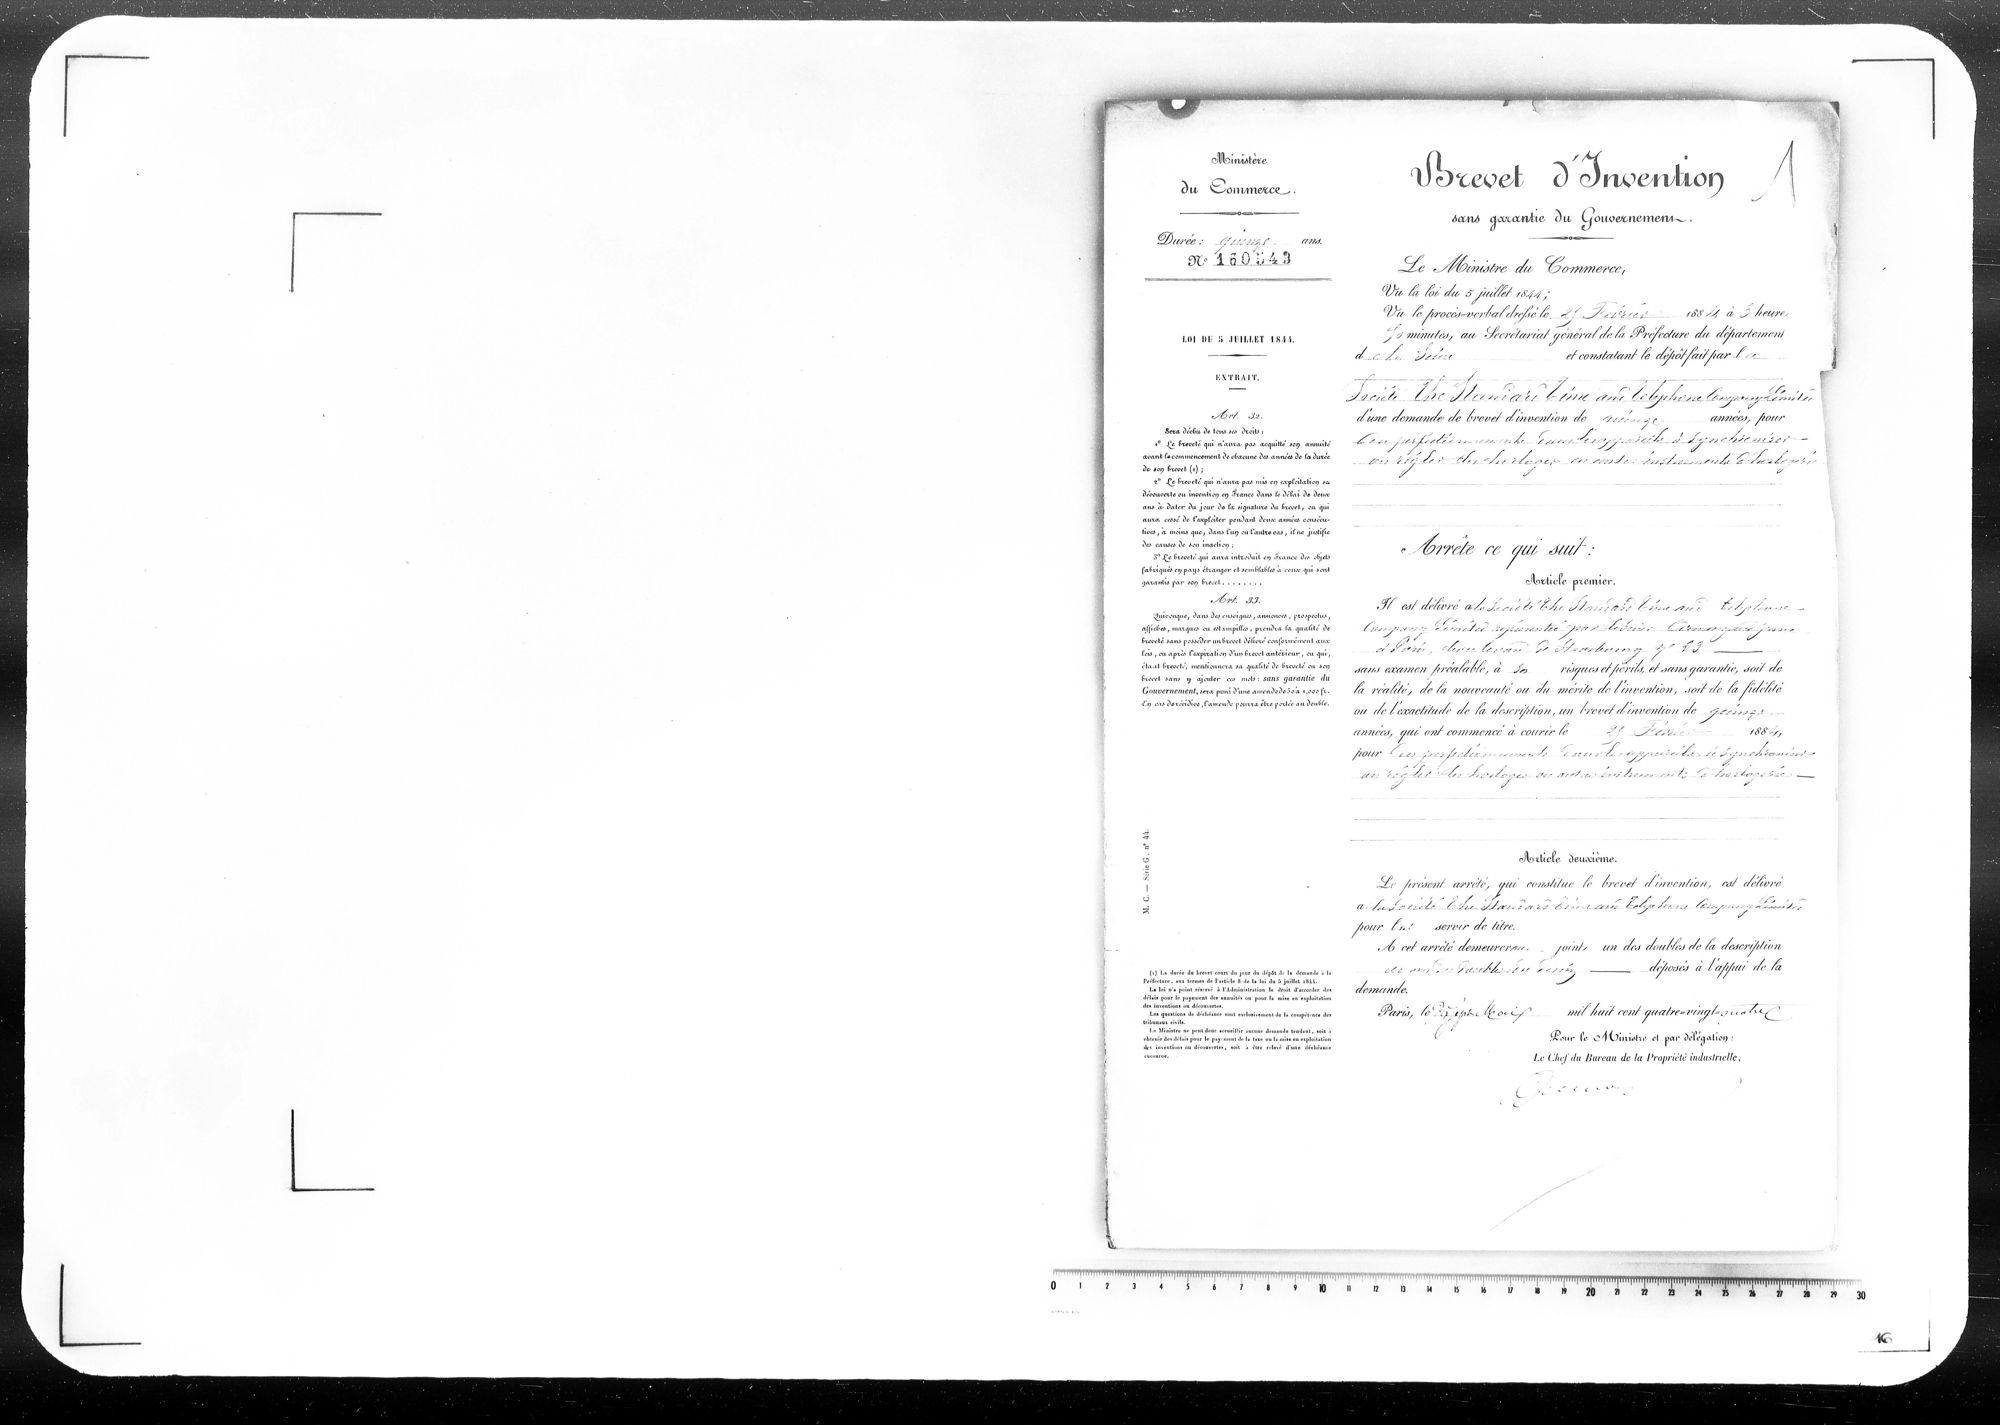 Ministère
du Commerce.
Durée : quinze ans.
N° 160543
LOI DU 5 JUILLET 1844.
EXTRAIT.
Art. 32.
Sera déchu de tous ses droits :
1° Le breveté qui n'aura pas acquitté son annuité
avant le commencement de chacune des années de la durée
de son brevet (1) ;
2° Le breveté qui n'aura pas mis en exploitation sa
découverte ou invention en France dans le délai de deux
ans à dater du jour de la signature du brevet, ou qui
aura cessé de l'exploiter pendant deux années consécu-
tives, à moins que, dans l'un ou l'autre cas, il ne justifie
des causes de son inaction ;
3° Le breveté qui aura introduit en France des objets
fabriqués en pays étranger et semblables à ceux qui sont
garantis par son brevet........
Art. 33.
Quiconque, dans des enseignes, annonces, prospectus,
affiches, marques ou estampilles, prendra la qualité de
breveté sans posséder un brevet délivré conformément aux
lois, ou après l'expiration d'un brevet antérieur, ou qui,
étant breveté, mentionnera sa qualité de breveté ou son
brevet sans y ajouter ces mots : sans garantie du
Gouvernement, sera puni d'une amende de 50 à 1,000 fr.
En cas de récidive, l'amende pourra être portée au double.
M. C. — Série G, n° 44.
(1) La durée du brevet court du jour du dépôt de la demande à la
Préfecture, aux termes de l'article 8 de la loi du 5 juillet 1844.
La loi n'a point réservé à l'Administration le droit d'accorder des
délais pour le payement des annuités ou pour la mise en exploitation
des inventions ou découvertes.
Les questions de déchéance sont exclusivement de la compétence des
tribunaux civils.
Le Ministre ne peut donc accueillir aucune demande tendant, soit à
obtenir des délais pour le payement de la taxe ou la mise en exploitation
des inventions ou découvertes, soit à être relevé d'une déchéance
encourue.
Brevet d'Invention
1
sans garantie du Gouvernement.
Le Ministre du Commerce,
Vu la loi du 5 juillet 1844 ;
Vu le procès-verbal dressé le Février 1884 à 3 heures
minutes, au Secrétariat général de la Préfecture du département
de la Seine et constatant le dépôt fait par la
Société The Standard Time and telephone Company Limited
d'une demande de brevet d'invention de quinze années, pour
des perfectionnements dans les appareils à synchroniser
ou régler les horloges ou autres instruments d'horlogerie
Arrête ce qui suit :
Article premier.
Il est délivré à la Société The Standard Time and telephone
Company Limited représentée par le sieur Armengaud jeune
à Paris, boulevard de Strasbourg n° 23
sans examen préalable, à ses risques et périls, et sans garantie, soit de
la réalité, de la nouveauté ou du mérite de l'invention, soit de la fidélité
ou de l'exactitude de la description, un brevet d'invention de quinze
années, qui ont commencé à courir le Février 1884,
pour des perfectionnements dans les appareils à synchroniser
ou régler les horloges ou autres instruments d'horlogerie
Article deuxième.
Le présent arrêté, qui constitue le brevet d'invention, est délivré
à la Société The Standard Time and Telephone Company Limited
pour lui servir de titre.
A cet arrêté demeureront joints un des doubles de la description
et un des doubles du dessin déposés à l'appui de la
demande.
Paris, le Mai mil huit cent quatre-vingt-quatre
Pour le Ministre et par délégation :
Le Chef du Bureau de la Propriété industrielle,
0 1 2 3 4 5 6 7 8 9 10 11 12 13 14 15 16 17 18 19 20 21 22 23 24 25 26 27 28 29 30
16